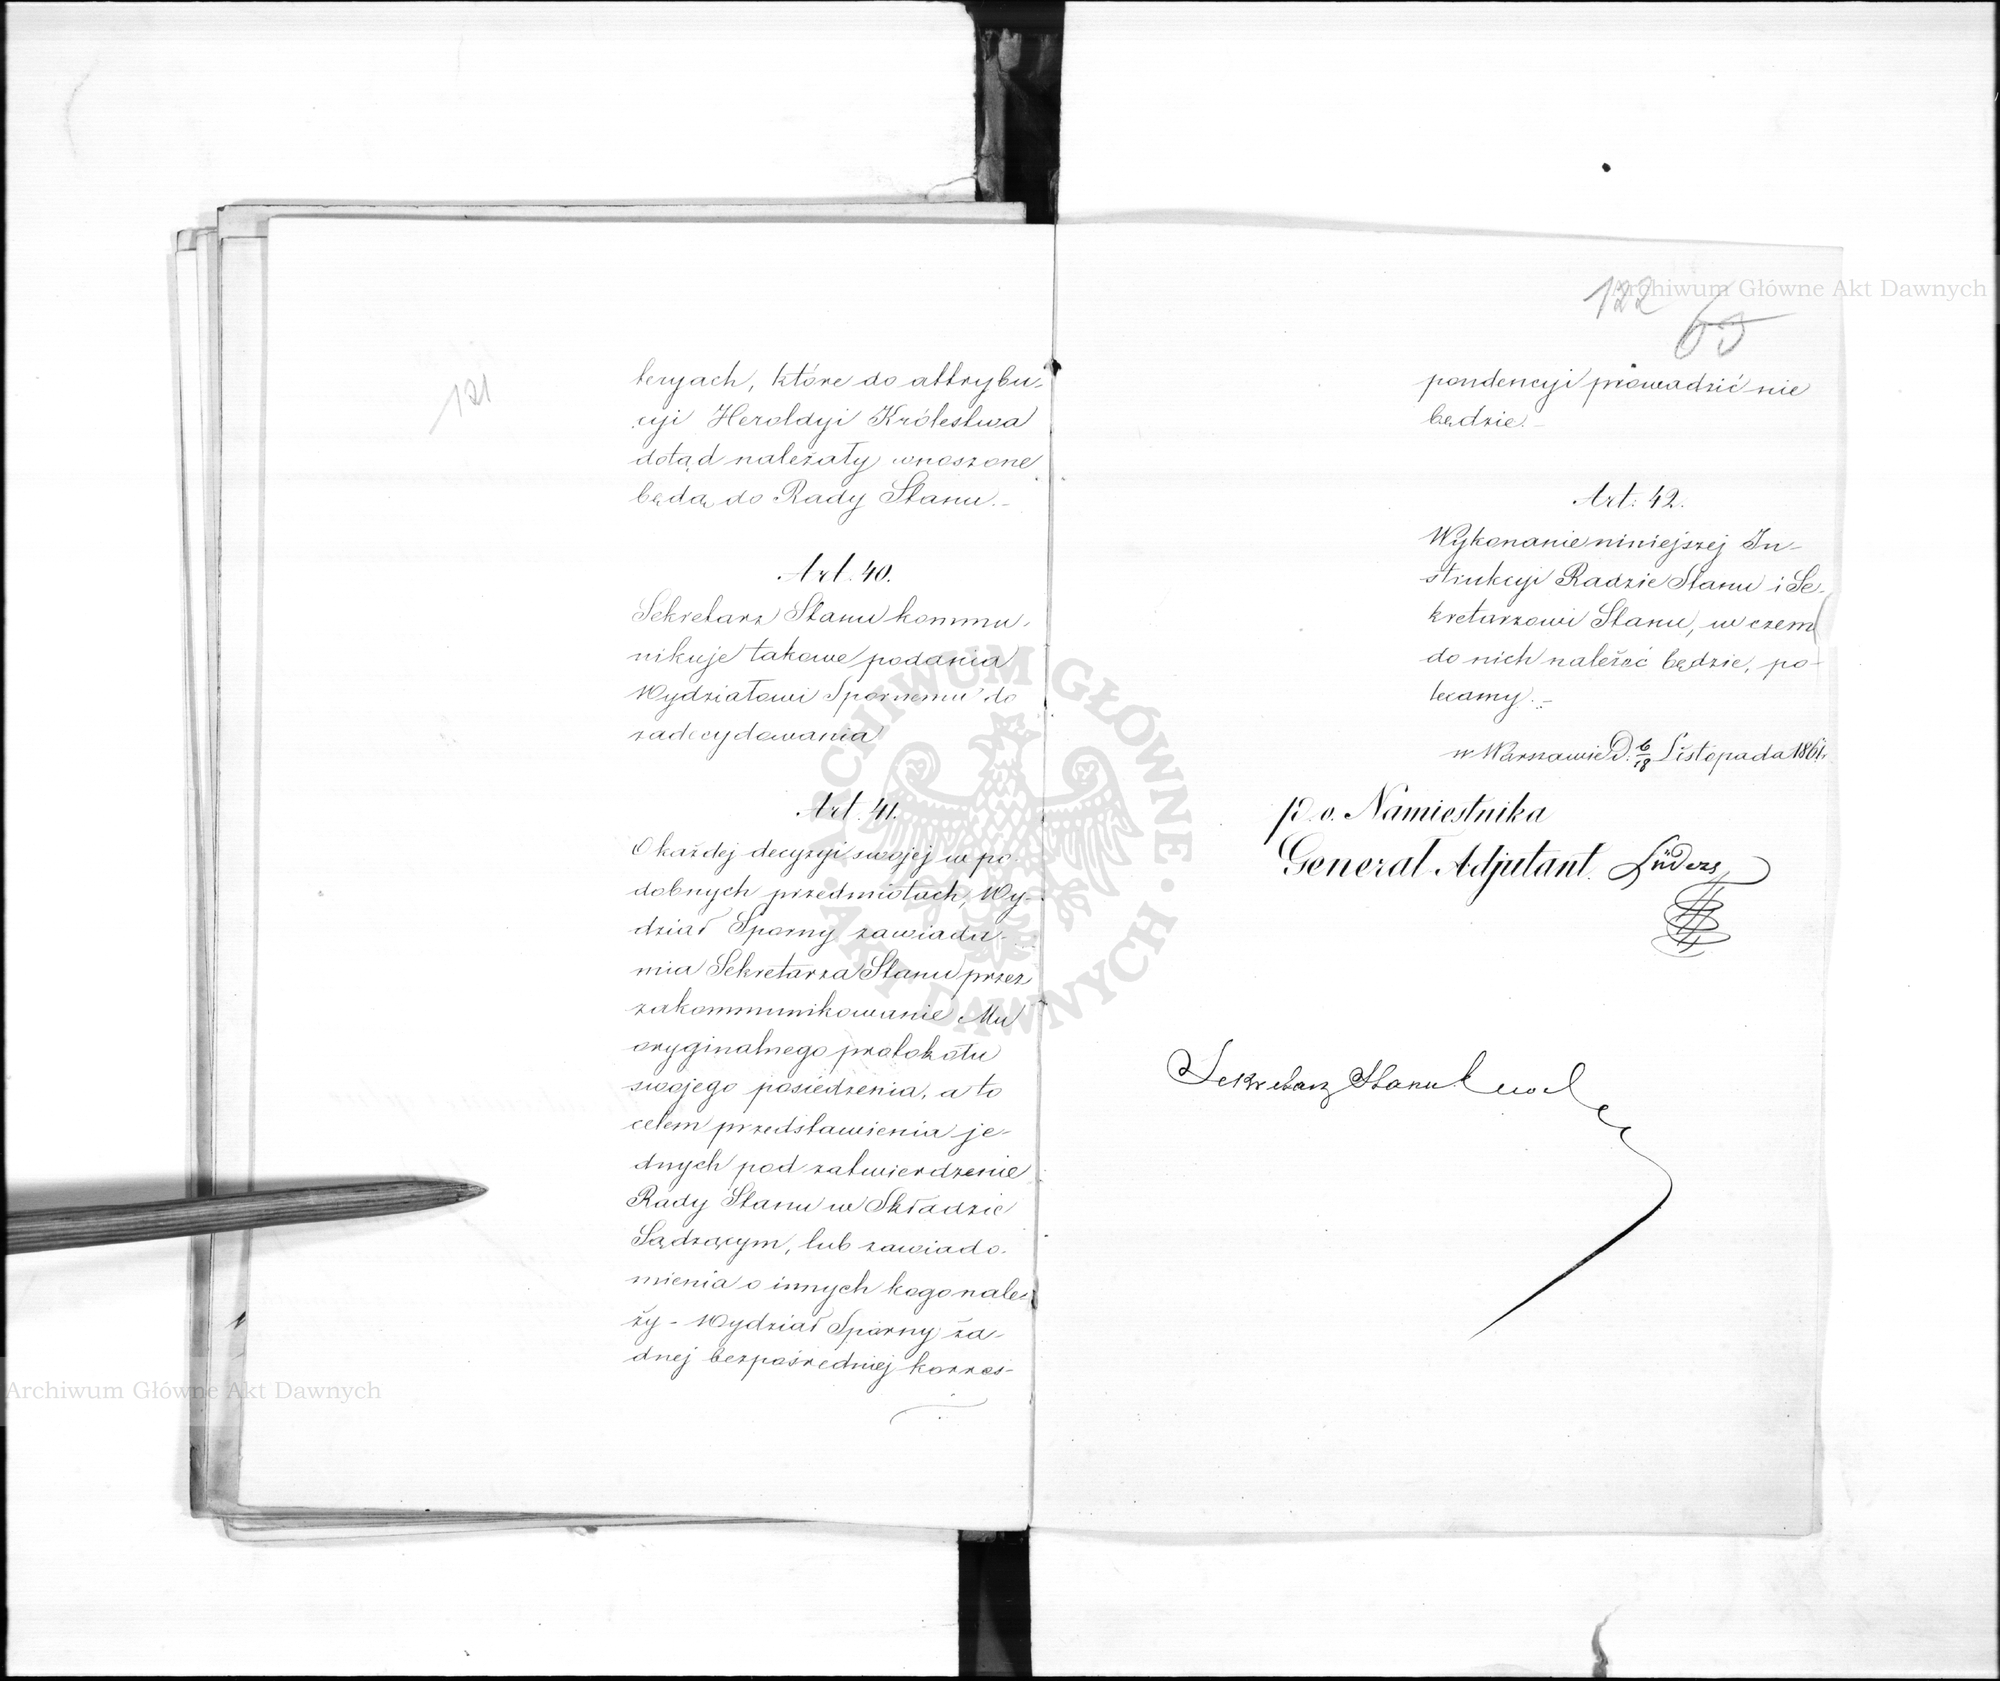 121
teryach, które do attrybu-
cyi Heroldyi Królestwa
dotąd należały wnoszone
będą do Rady Stanu.-
Art. 40.
Sekretarz Stanu kommu-
nikuje takowe podania
Wydziałowi Spornemu do
zadecydowania
Art. 41.
O każdej decyzyi swojej w po-
dobnych przedmiotach, Wy-
dział Sporny zawiada-
mia Sekretarza Stanu przez
zakommunikowanie Mu
oryginalnego protokółu
swojego posiedzenia, a to
celem przedstawienia je-
dnych pod zatwierdzenie
Rady Stanu w Składzie
Sądzącym, lub zawiado-
mienia o innych kogo nale-
ży - Wydział Sporny ża-
dnej bezpośredniej korres-
122
65
pondencyi prowadzić nie
będzie.-
Art: 42.
Wykonanie niniejszej In-
strukcyi Radzie Stanu i Se-
kretarzowi Stanu, w czem
do nich należeć będzie, po-
lecamy.-
w Warszawie D. 6/18 Listopada 1861 r.
p. o. Namiestnika
Generał Adjutant. Lüders
Sekretarz Stanu
ARCHIWUM GŁÓWNE AKT DAWNYCH
Archiwum Główne Akt Dawnych
Archiwum Główne Akt Dawnych